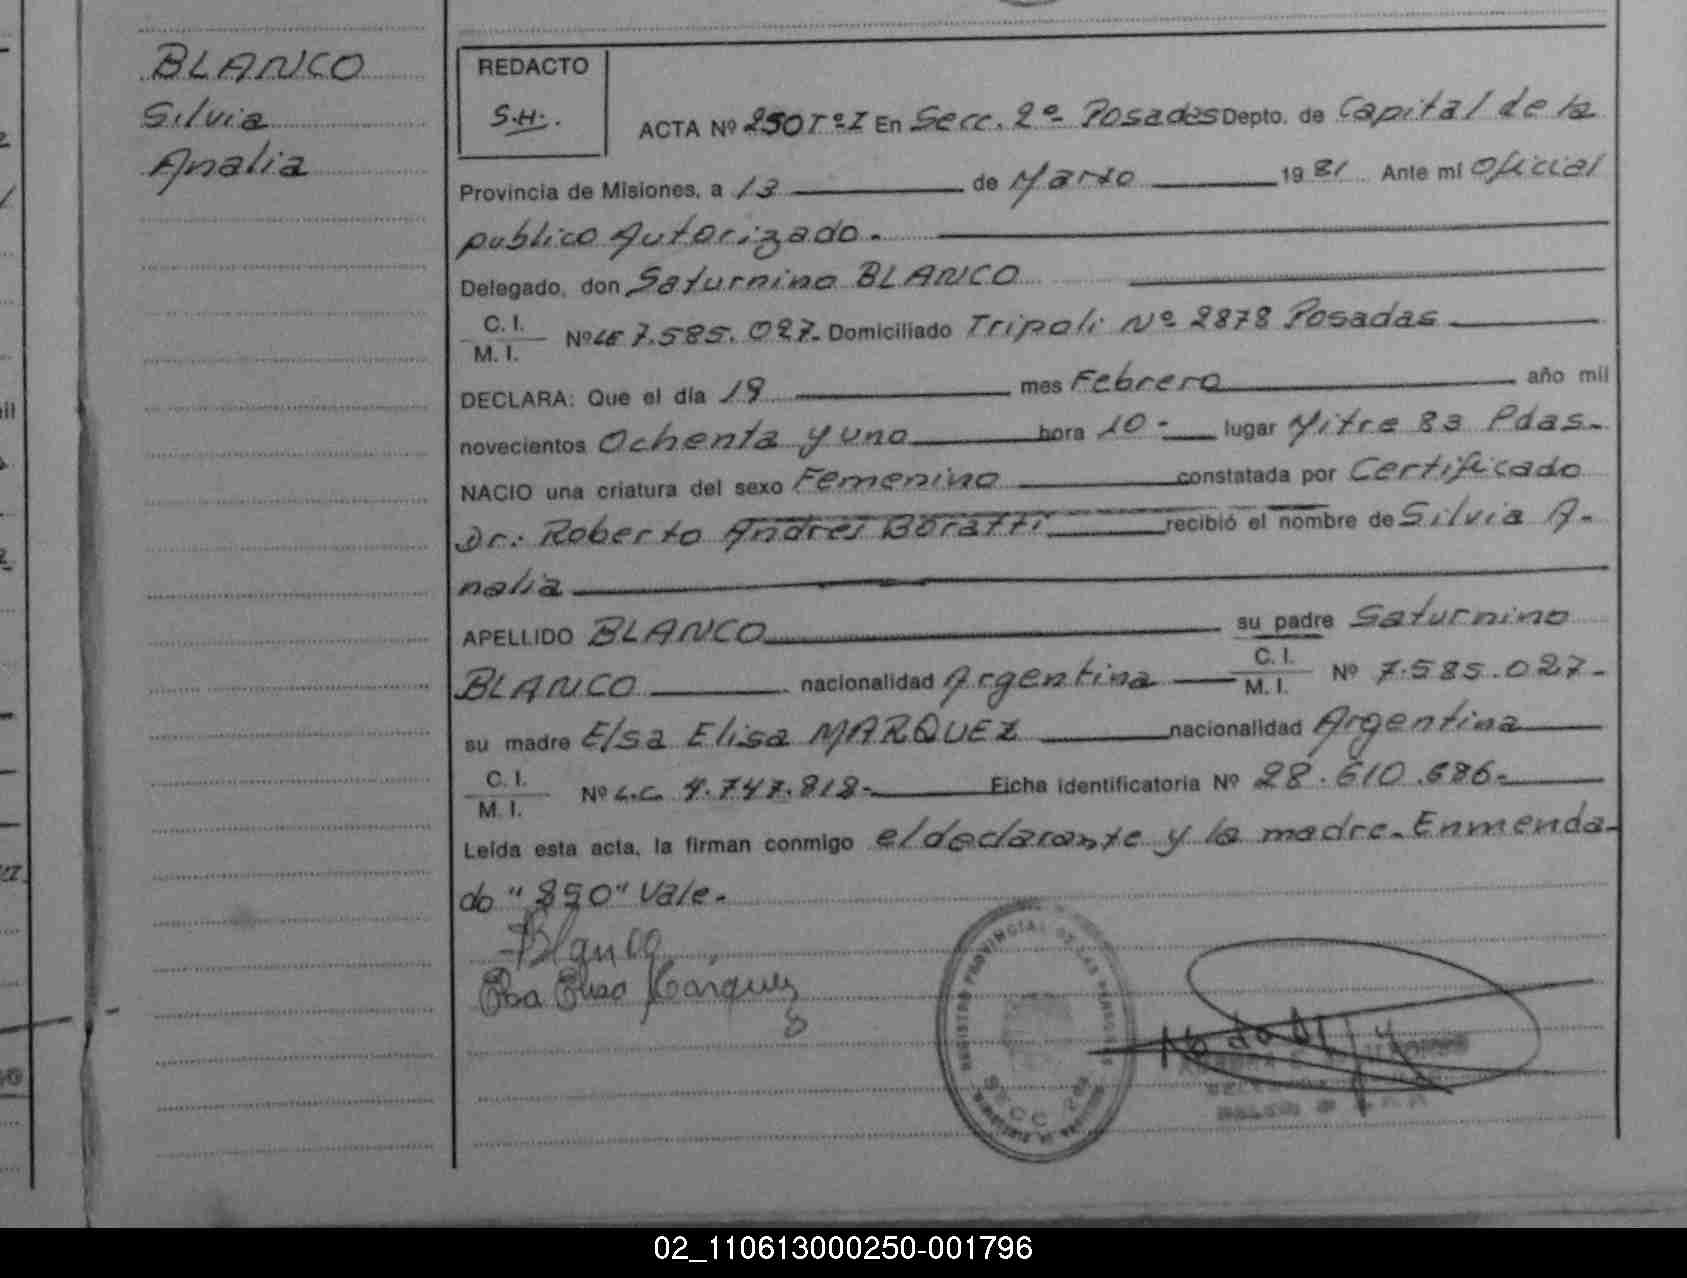 BLANCO
Silvia
Analia
REDACTO
S.H.
ACTA Nº 250 Tº I En Secc. 2º Posadas Depto. de Capital de la
Provincia de Misiones, a 13 de Marzo 1981 Ante mi Oficial
publico Autorizado.
Delegado, don Saturnino BLANCO
C. I.
M. I.
Nº LE 7.585.027. Domiciliado Tripoli Nº 2878 Posadas
DECLARA: Que el día 19 mes Febrero año mil
novecientos Ochenta y uno hora 10 lugar Mitre 83 Pdas.
NACIO una criatura del sexo Femenino constatada por Certificado
Dr. Roberto Andres Boratti recibió el nombre de Silvia A-
nalia
APELLIDO BLANCO su padre Saturnino
BLANCO nacionalidad Argentina C. I.
M. I. Nº 7.585.027-
su madre Elsa Elisa MARQUEZ nacionalidad Argentina
C. I.
M. I.
Nº L.C. 4.747.818- Ficha identificatoria Nº 28.610.686-
Leída esta acta, la firman conmigo el declarante y la madre. Enmenda-
do "250" Vale.
Blanco
Elsa Elisa Márquez
REGISTRO PROVINCIAL DE LAS PERSONAS
SECC. 2da
02_110613000250-001796